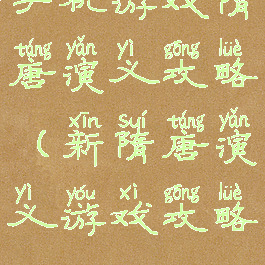 机游戏隋
táng yǎn yì gōng lüè
唐演义攻略
xīn suí táng yǎn
(新隋唐演
yì yóu xì gōng lüè
义游戏攻略